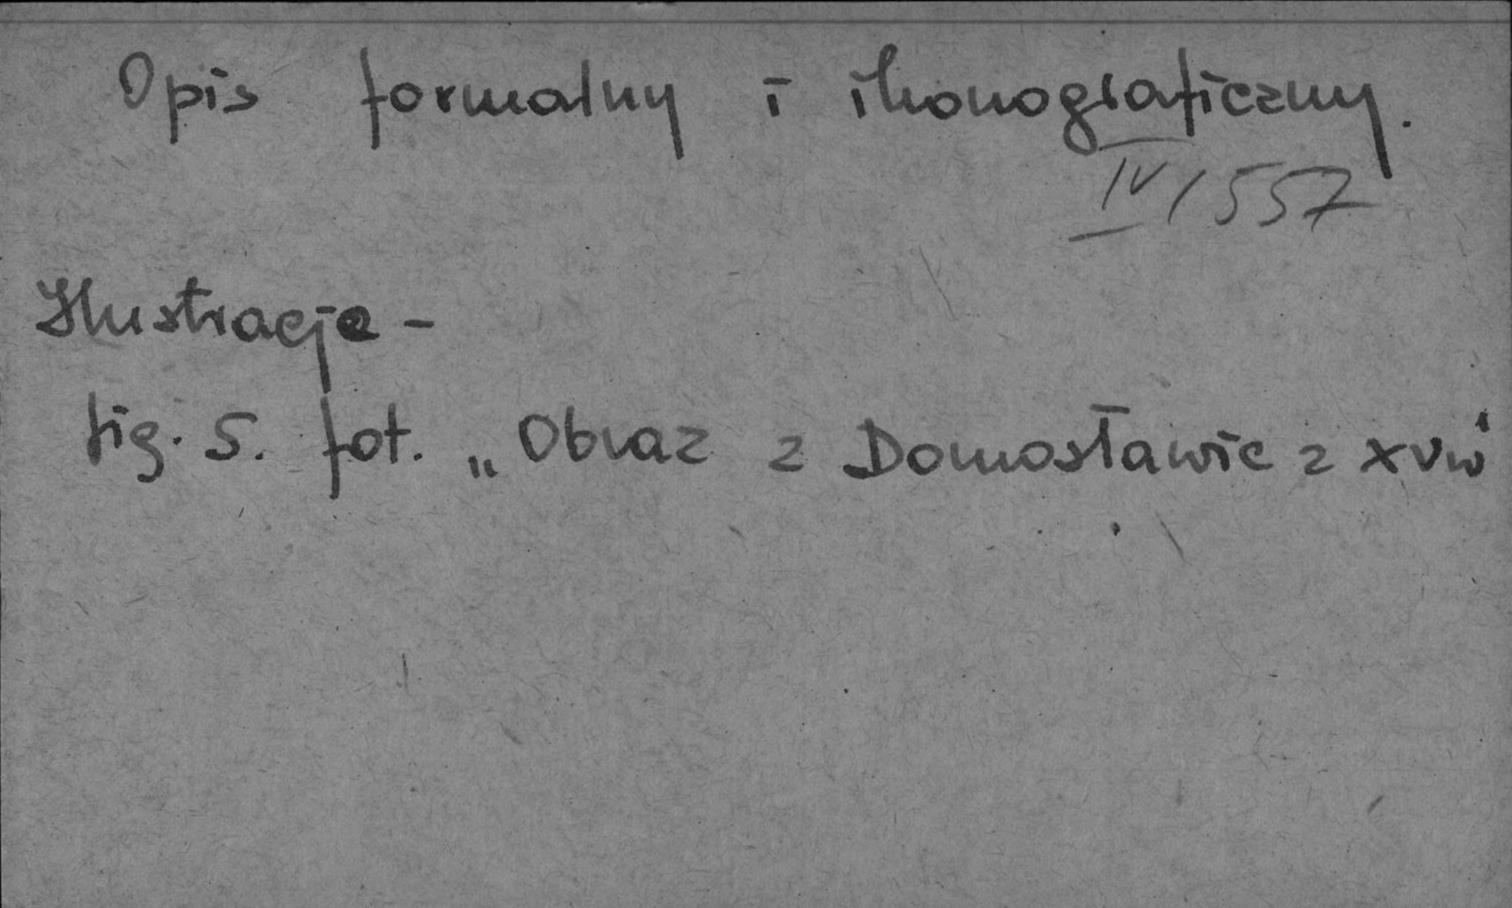 Opis formalny i ikonograficzny.
IV/557
Ilustracje -
fig. 5. fot. „Obraz z Domosławic z XVw"